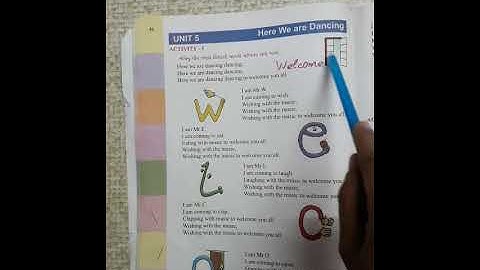 UNIT 5
Here We are Dancing
ACTIVITY - I
Here we are dancing dancing,
Here we are dancing dancing,
Here we are dancing dancing to welcome you all
Welcome
I am Mr W
I am coming to wish
Wishing with the music,
Wishing with the music,
Wishing with the music to welcome you all
I am Mr E
I am coming to eat
Eating with music to welcome you all
Wishing with the music,
Wishing with the music to welcome you all
I am Mr L
I am coming to laugh
Laughing with the music to welcome you
Wishing with the music,
Wishing with the music to welcome you
I am Mr C
I am coming to clap,
Clapping with music to welcome you all
Wishing with the music,
Wishing with the music to welcome you all
I am Mr O
I am coming to